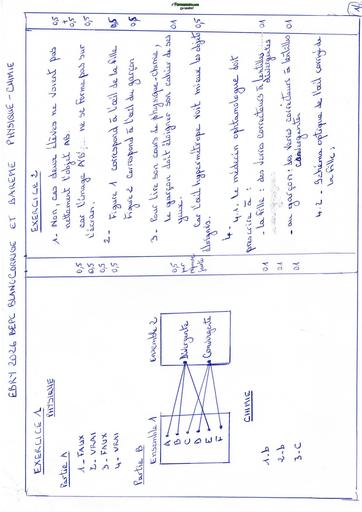 EBRY 2026 BEPC BLANC CORRIGE ET BAREME PHYSIQUE - CHIMIE
EXERCICE 1
PHYSIQUE
Partie A
1 - FAUX 0,5
2 - VRAI 0,5
3 - FAUX 0,5
4 - VRAI 0,5
Partie B
Ensemble 1
Ensemble 2
A
B
C
D
E
F
Divergente
Convergente
0,5
par
réponse
juste
CHIMIE
1 - b 01
2 - b 01
3 - C 01
EXERCICE 2
1 - Non, ces deux élèves ne voient pas 0,5
nettement l'objet AB +
car l'image A'B' ne se forme pas sur 0,5
l'écran.
2 - Figure 1 correspond à l'œil de la fille 0,5
Figure 2 correspond à l'œil du garçon 0,5
3 - Pour lire son cours de physique-chimie,
le garçon doit éloigner son cahier de ses 01
yeux.
Car l'œil hypermétrope voit mieux les objets 0,5
éloignés.
4 - 4.1. Le médecin ophtamologue doit
prescrire à :
- la fille : des verres correcteurs à lentilles 01
divergentes
- au garçon : des verres correcteurs à lentilles 01
convergentes
4.2 - Schéma optique de l'œil corrigé de
la fille. 01